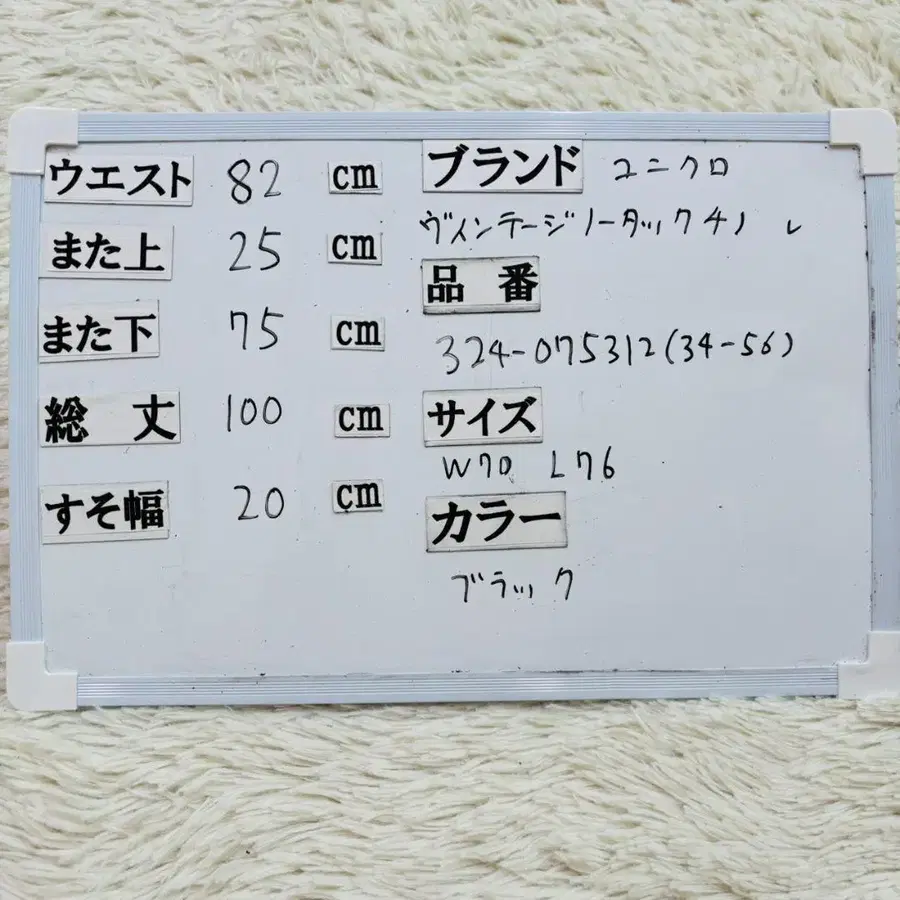 ウエスト 82 cm
また上 25 cm
また下 75 cm
総丈 100 cm
すそ幅 20 cm
ブランド ユニクロ
ヴィンテージノータックチノ
品番
324-075312(34-56)
サイズ
W70 L76
カラー
ブラック